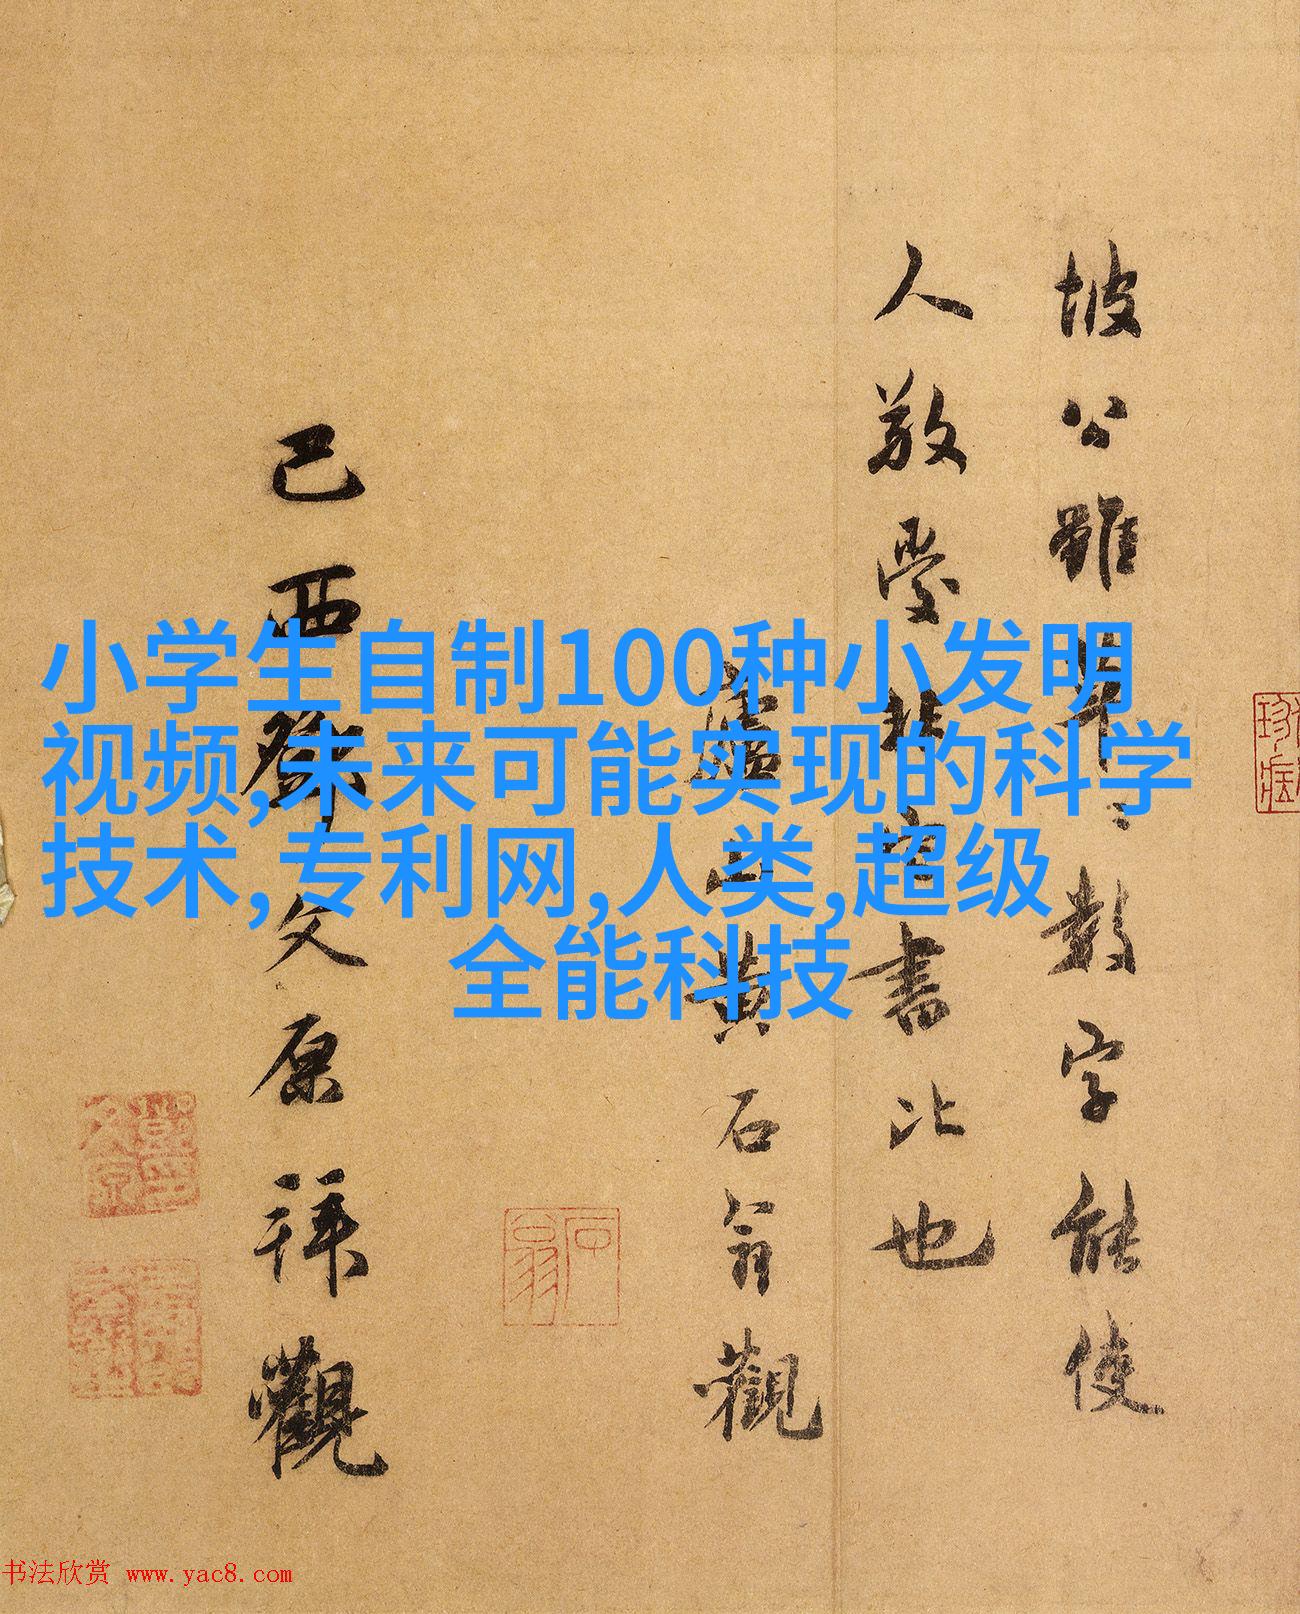 坡公雖草草數字能使
人敬愛非字書比也
廬山黃石翁觀
己酉鄧文原拜觀
石翁
小学生自制100种小发明
视频,未来可能实现的科学
技术,专利网,人类,超级
全能科技
书法欣赏 www.yac8.com